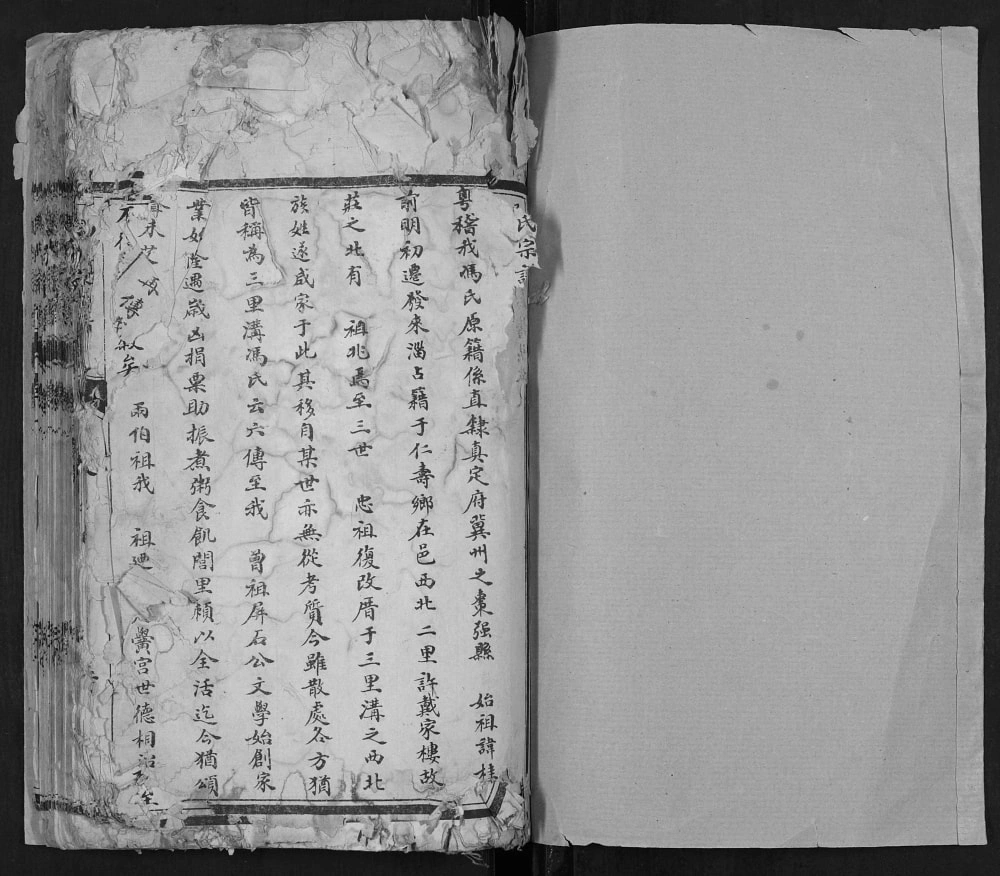 氏宗譜
粵稽我馮氏原籍係直隸真定府冀州之棗强縣 始祖諱桂
前明初遷發來淄占籍于仁壽鄉在邑西北二里許戴家樓故
莊之北有 祖兆焉至三世 忠祖復改厝于三里溝之西北
族姓遂咸家于此其移自某世亦無從考質今雖散處各方猶
皆稱為三里溝馮氏云六傳至我 曾祖屏石公文學始創家
業如隆遇歲凶捐粟助振煮粥食飢閭里賴以全活迄今猶頌
不 矣 兩伯祖我 祖 黌宮世德相沿 至